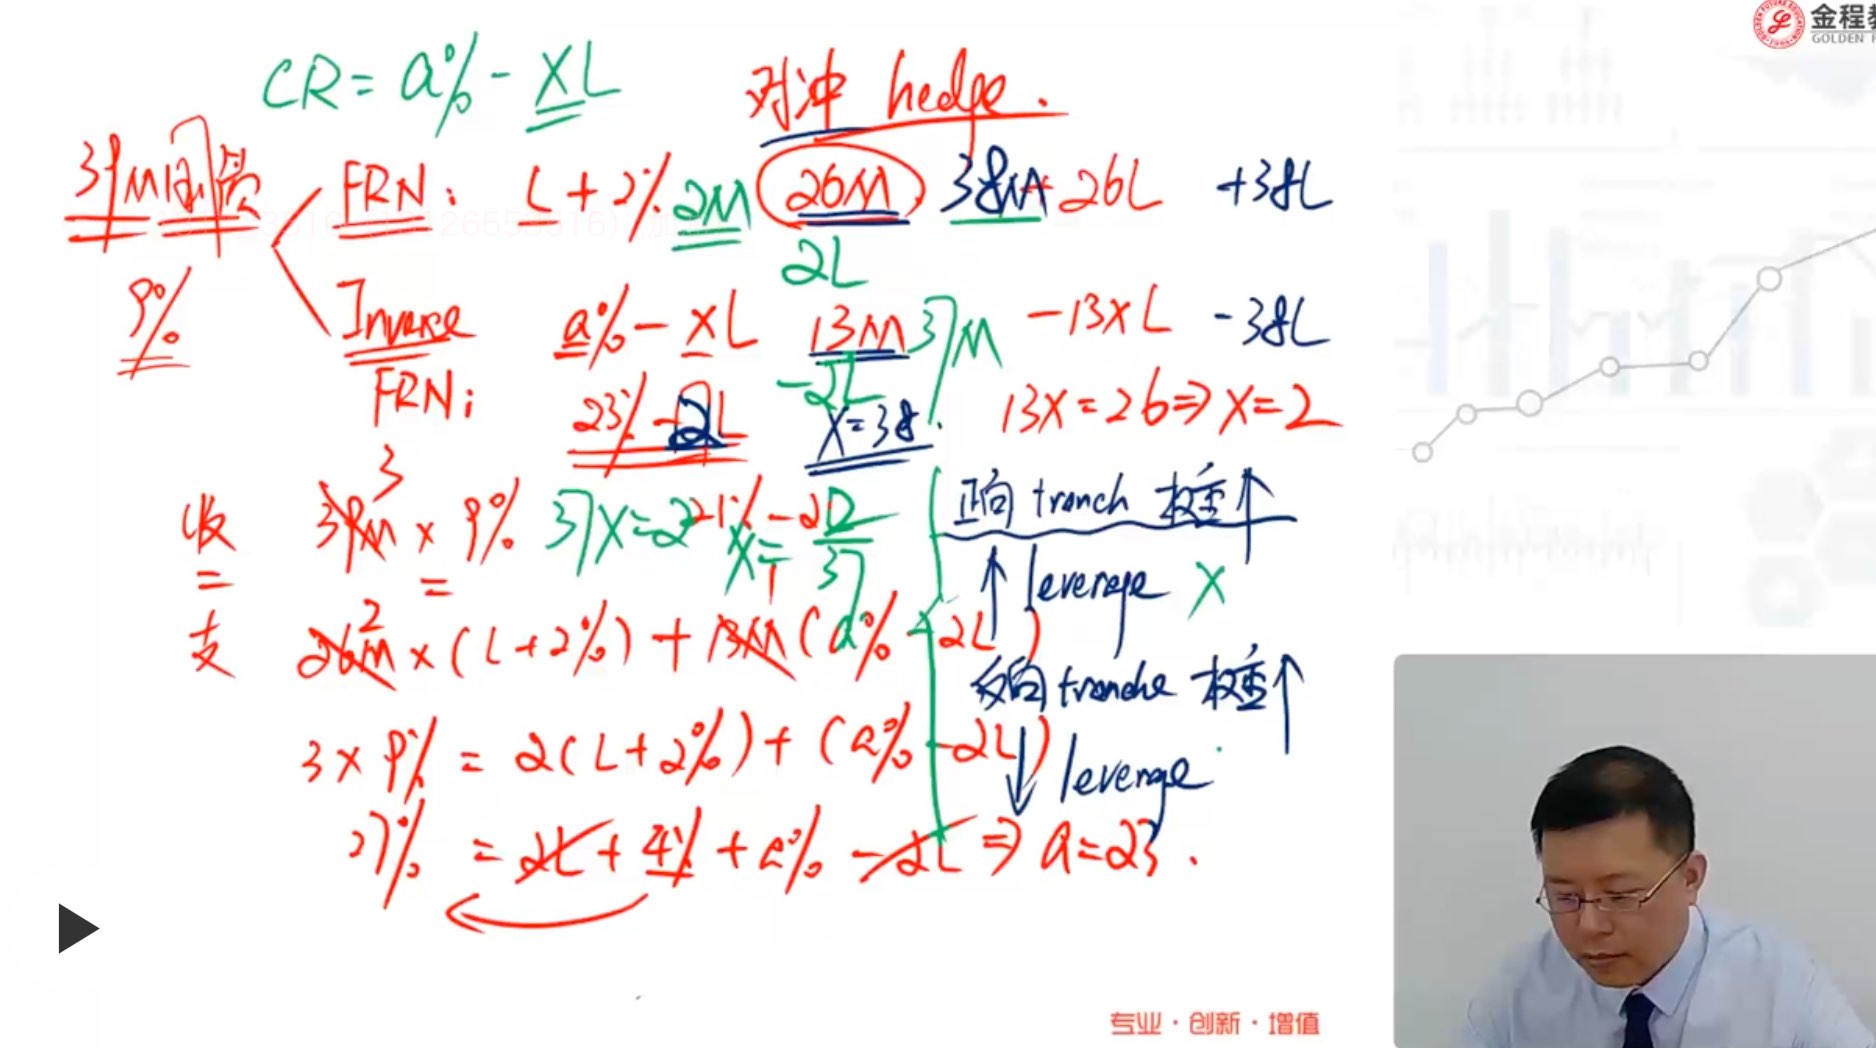 金程教
GOLDEN F
CR = a% - XL
对冲 hedge.
39M固贷
9%
FRN: L + 2% 2M 26M 38M 26L +38L
2L
Inverse FRN: a% - XL 13M 37M -13XL -38L
-2L
23% - 2L X=38. 13X = 26 ⇒ X = 2
收 = 支
3
39M × 9% 37X = 2 X = 2/37
=
2 1
26M × (L + 2%) + 13M (a% - 2L)
3 × 9% = 2(L + 2%) + (a% - 2L)
27% = 2L + 4% + a% - 2L ⇒ a = 23.
正向 tranch 权重↑
↑ leverage X
反向 tranche 权重↑
↓ leverage
专业·创新·增值